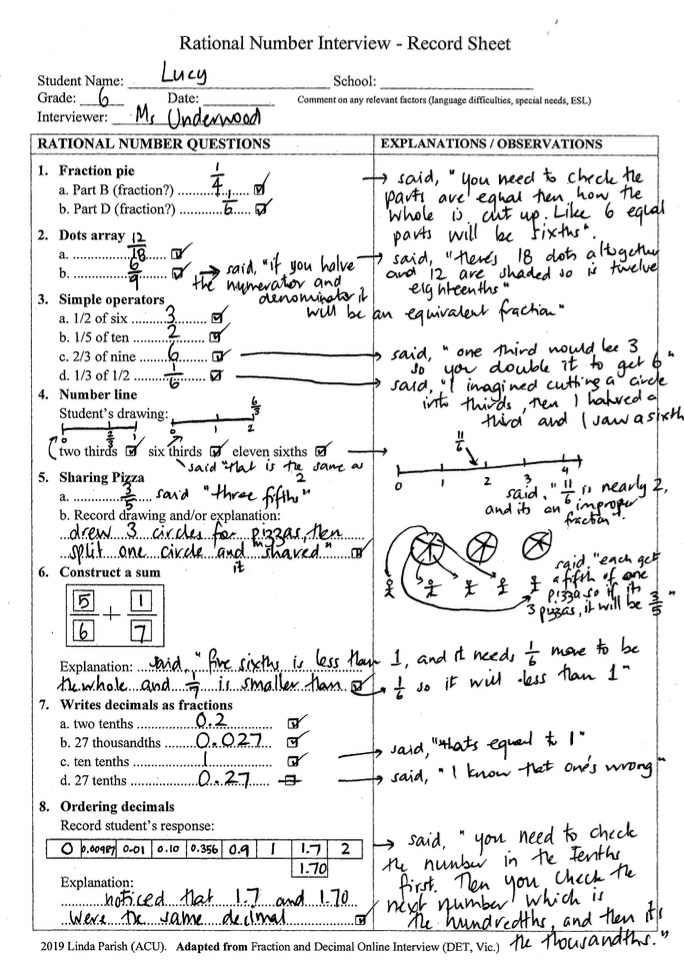 Rational Number Interview - Record Sheet
Student Name: Lucy School:
Grade: 6 Date: Comment on any relevant factors (language difficulties, special needs, ESL)
Interviewer: Ms Underwood
RATIONAL NUMBER QUESTIONS
1. Fraction pie
a. Part B (fraction?) 1/4
b. Part D (fraction?) 1/6
2. Dots array
a. 12/18
b. 6/9 → said, "if you halve
the numerator and
denominator it
will be an equivalent fraction"
3. Simple operators
a. 1/2 of six 3
b. 1/5 of ten 2
c. 2/3 of nine 6
d. 1/3 of 1/2 1/6
4. Number line
Student's drawing: 6/3
0 2/3 1 0 1 2
two thirds six thirds eleven sixths
said "that is the same as
2
5. Sharing Pizza
a. 3/5 said "three fifths"
b. Record drawing and/or explanation:
drew 3 circles for pizzas, then
split one circle and "shared"
it
6. Construct a sum
5/6 + 1/7
Explanation: said, "five sixths is less than 1, and it needs 1/6 more to be
the whole and 1/7 is smaller than 1/6 so it will less than 1"
7. Writes decimals as fractions
a. two tenths 0.2
b. 27 thousandths 0.027
c. ten tenths 1
d. 27 tenths 0.27
8. Ordering decimals
Record student's response:
0 0.00987 0.01 0.10 0.356 0.9 1 1.7 2
1.70
Explanation:
noticed that 1.7 and 1.70
were the same decimal
EXPLANATIONS / OBSERVATIONS
→ said, "you need to check the
parts are equal then how the
whole is cut up. Like 6 equal
parts will be sixths".
→ said, "there's 18 dots altogether
and 12 are shaded so is twelve
eighteenths"
→ said, "one third would be 3
so you double it to get 6"
→ said, "I imagined cutting a circle
into thirds, then I halved a
third and I saw a sixth
11/6
0 1 2 3 4
said, "11/6 is nearly 2,
and its an improper
fraction".
said, "each get
a fifth of one
pizza so if its
3 pizzas, it will be 3/5"
→ said, "thats equal to 1"
→ said, "I know that one's wrong"
→ said, "you need to check
the number in the tenths
first. Then you check the
next number which is
the hundredths, and then it's
the thousandths."
2019 Linda Parish (ACU). Adapted from Fraction and Decimal Online Interview (DET, Vic.)